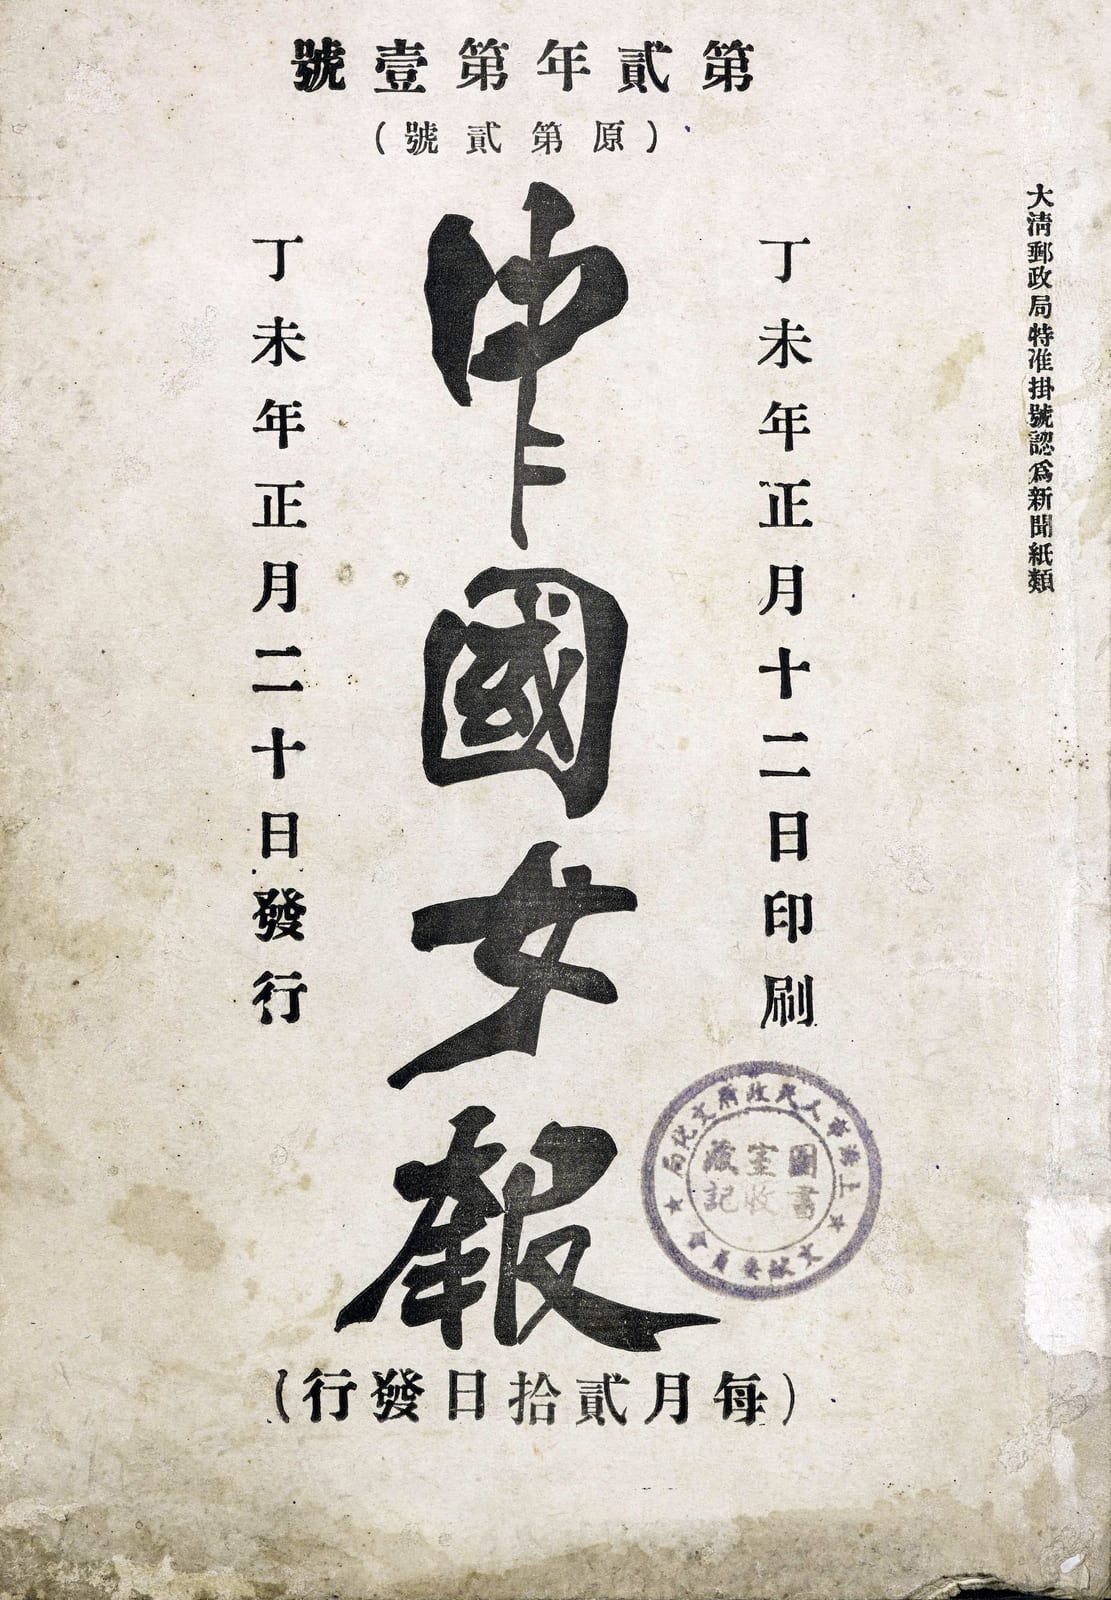 第貳年第壹號
(原第貳號)
大清郵政局特准掛號認爲新聞紙類
丁未年正月十二日印刷
中國女報
丁未年正月二十日發行
(每月貳拾日發行)
上海市人民政府文化局
圖書
室收
藏記
文獻委員會